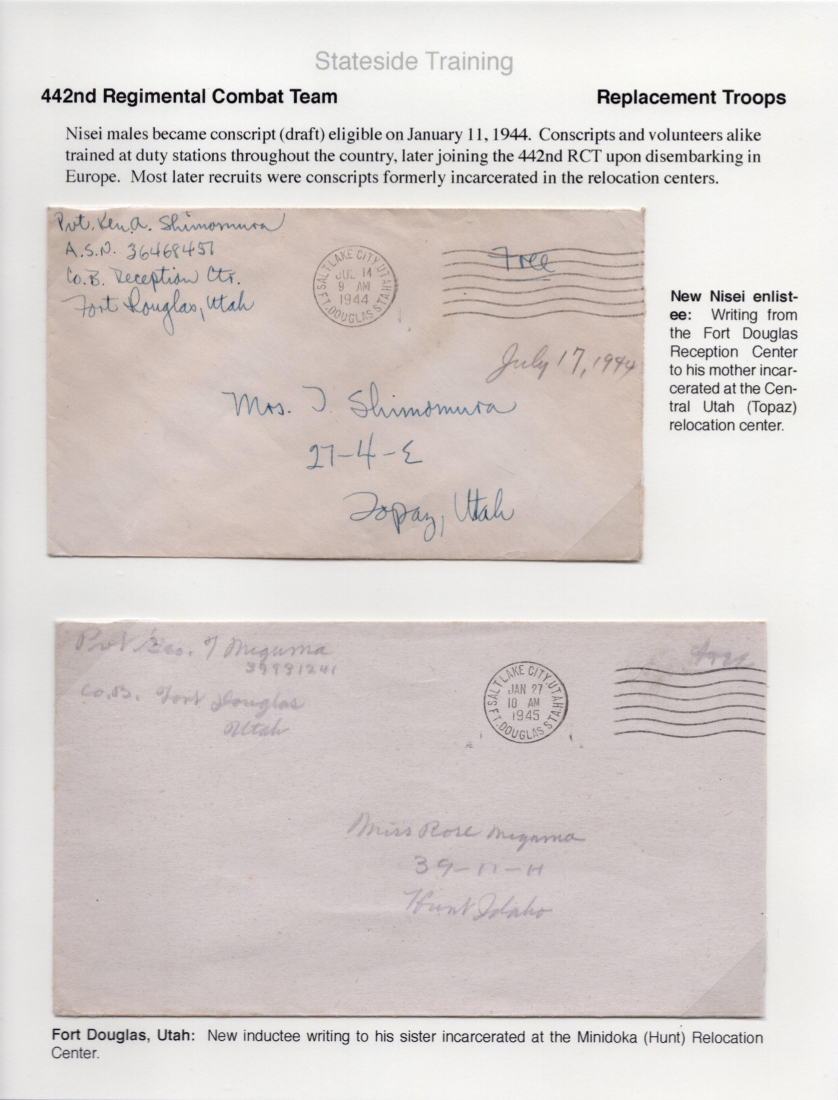 Stateside Training
442nd Regimental Combat Team
Replacement Troops
Nisei males became conscript (draft) eligible on January 11, 1944. Conscripts and volunteers alike
trained at duty stations throughout the country, later joining the 442nd RCT upon disembarking in
Europe. Most later recruits were conscripts formerly incarcerated in the relocation centers.
Pvt. Ken A. Shimomura
A.S.N. 36468457
Co. B. Reception Ctr.
Fort Douglas, Utah
SALT LAKE CITY, UTAH
JUL 14
9 AM
1944
FT. DOUGLAS STA.
Free
July 17, 1944
Mrs. T. Shimomura
27-4-E
Topaz, Utah
New Nisei enlist-
ee: Writing from
the Fort Douglas
Reception Center
to his mother incar-
cerated at the Cen-
tral Utah (Topaz)
relocation center.
Pvt Geo. Y Mizuma
Co. B. Fort Douglas
Utah
SALT LAKE CITY, UTAH
JAN 27
10 AM
1945
FT. DOUGLAS STA.
Free
Miss Rose Mizuma
39-11-H
Hunt Idaho
Fort Douglas, Utah: New inductee writing to his sister incarcerated at the Minidoka (Hunt) Relocation
Center.